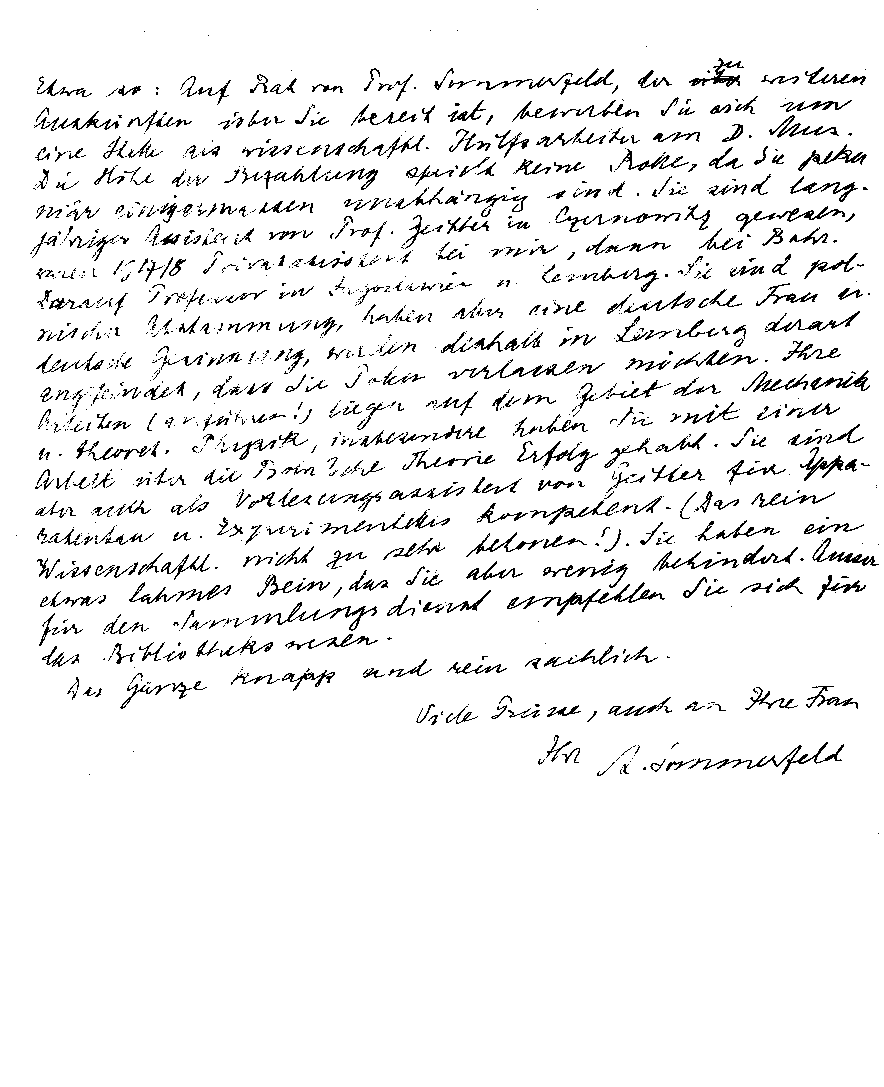 Etwa so: Auf Rat von Prof. Sommerfeld, der zu weiteren
Auskünften über Sie bereit ist, bewerben Sie sich um
eine Stelle als wissenschaftl. Hülfsarbeiter am D. Mus.
Die Höhe der Bezahlung spielt keine Rolle, da Sie peku
niär einigermassen unabhängig sind. Sie sind lang-
jähriger Assistent von Prof. Geitler in Czernowitz gewesen,
waren 1917/8 Privatassistent bei mir, dann bei Bohr.
Darauf Professor in Jugoslawien u. Lemberg. Sie sind pol-
nischer Abstammung, haben aber eine deutsche Frau u.
deutsche Gesinnung, wurden deshalb in Lemberg derart
angefeindet, dass Sie Polen verlassen möchten. Ihre
Arbeiten (anführen!) liegen auf dem Gebiet der Mechanik
u. theoret. Physik, insbesondere haben Sie mit einer
Arbeit über die Theorie Erfolg gehabt. Sie sind
aber auch als Vorlesungsassistent von Geitler für Appa-
ratenbau u. Experimentelles kompetent. (Das rein
Wissenschaftl. nicht zu sehr betonen!). Sie haben ein
etwas lahmes Bein, das Sie aber wenig behindert. Ausser
für den Sammlungsdienst empfehlen Sie sich für
das Bibliothekswesen.
Das Ganze knapp und rein sachlich.
Viele Grüsse, auch an Ihre Frau
Ihr A. Sommerfeld